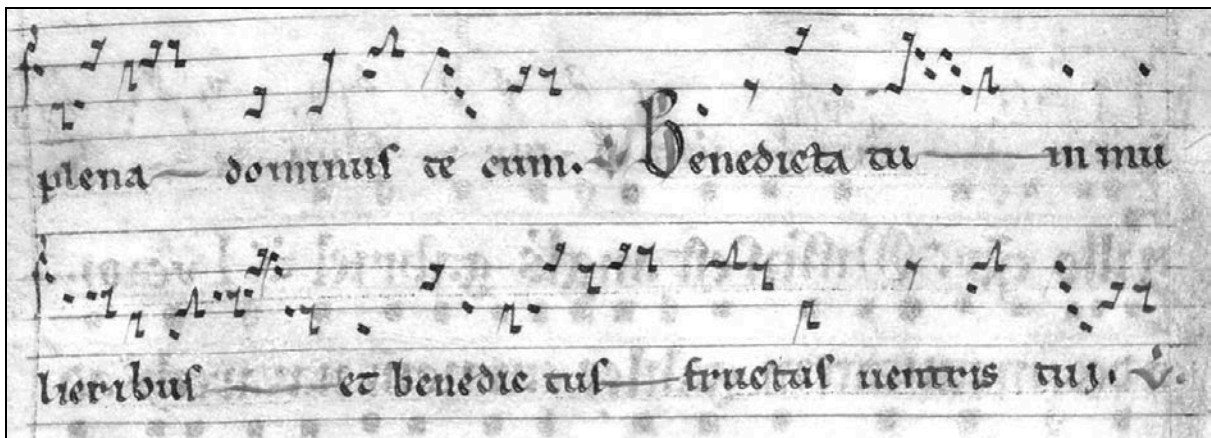 plena dominus te cum. V Benedicta tu in mu
lieribus et benedictus fructus uentris tui. V.